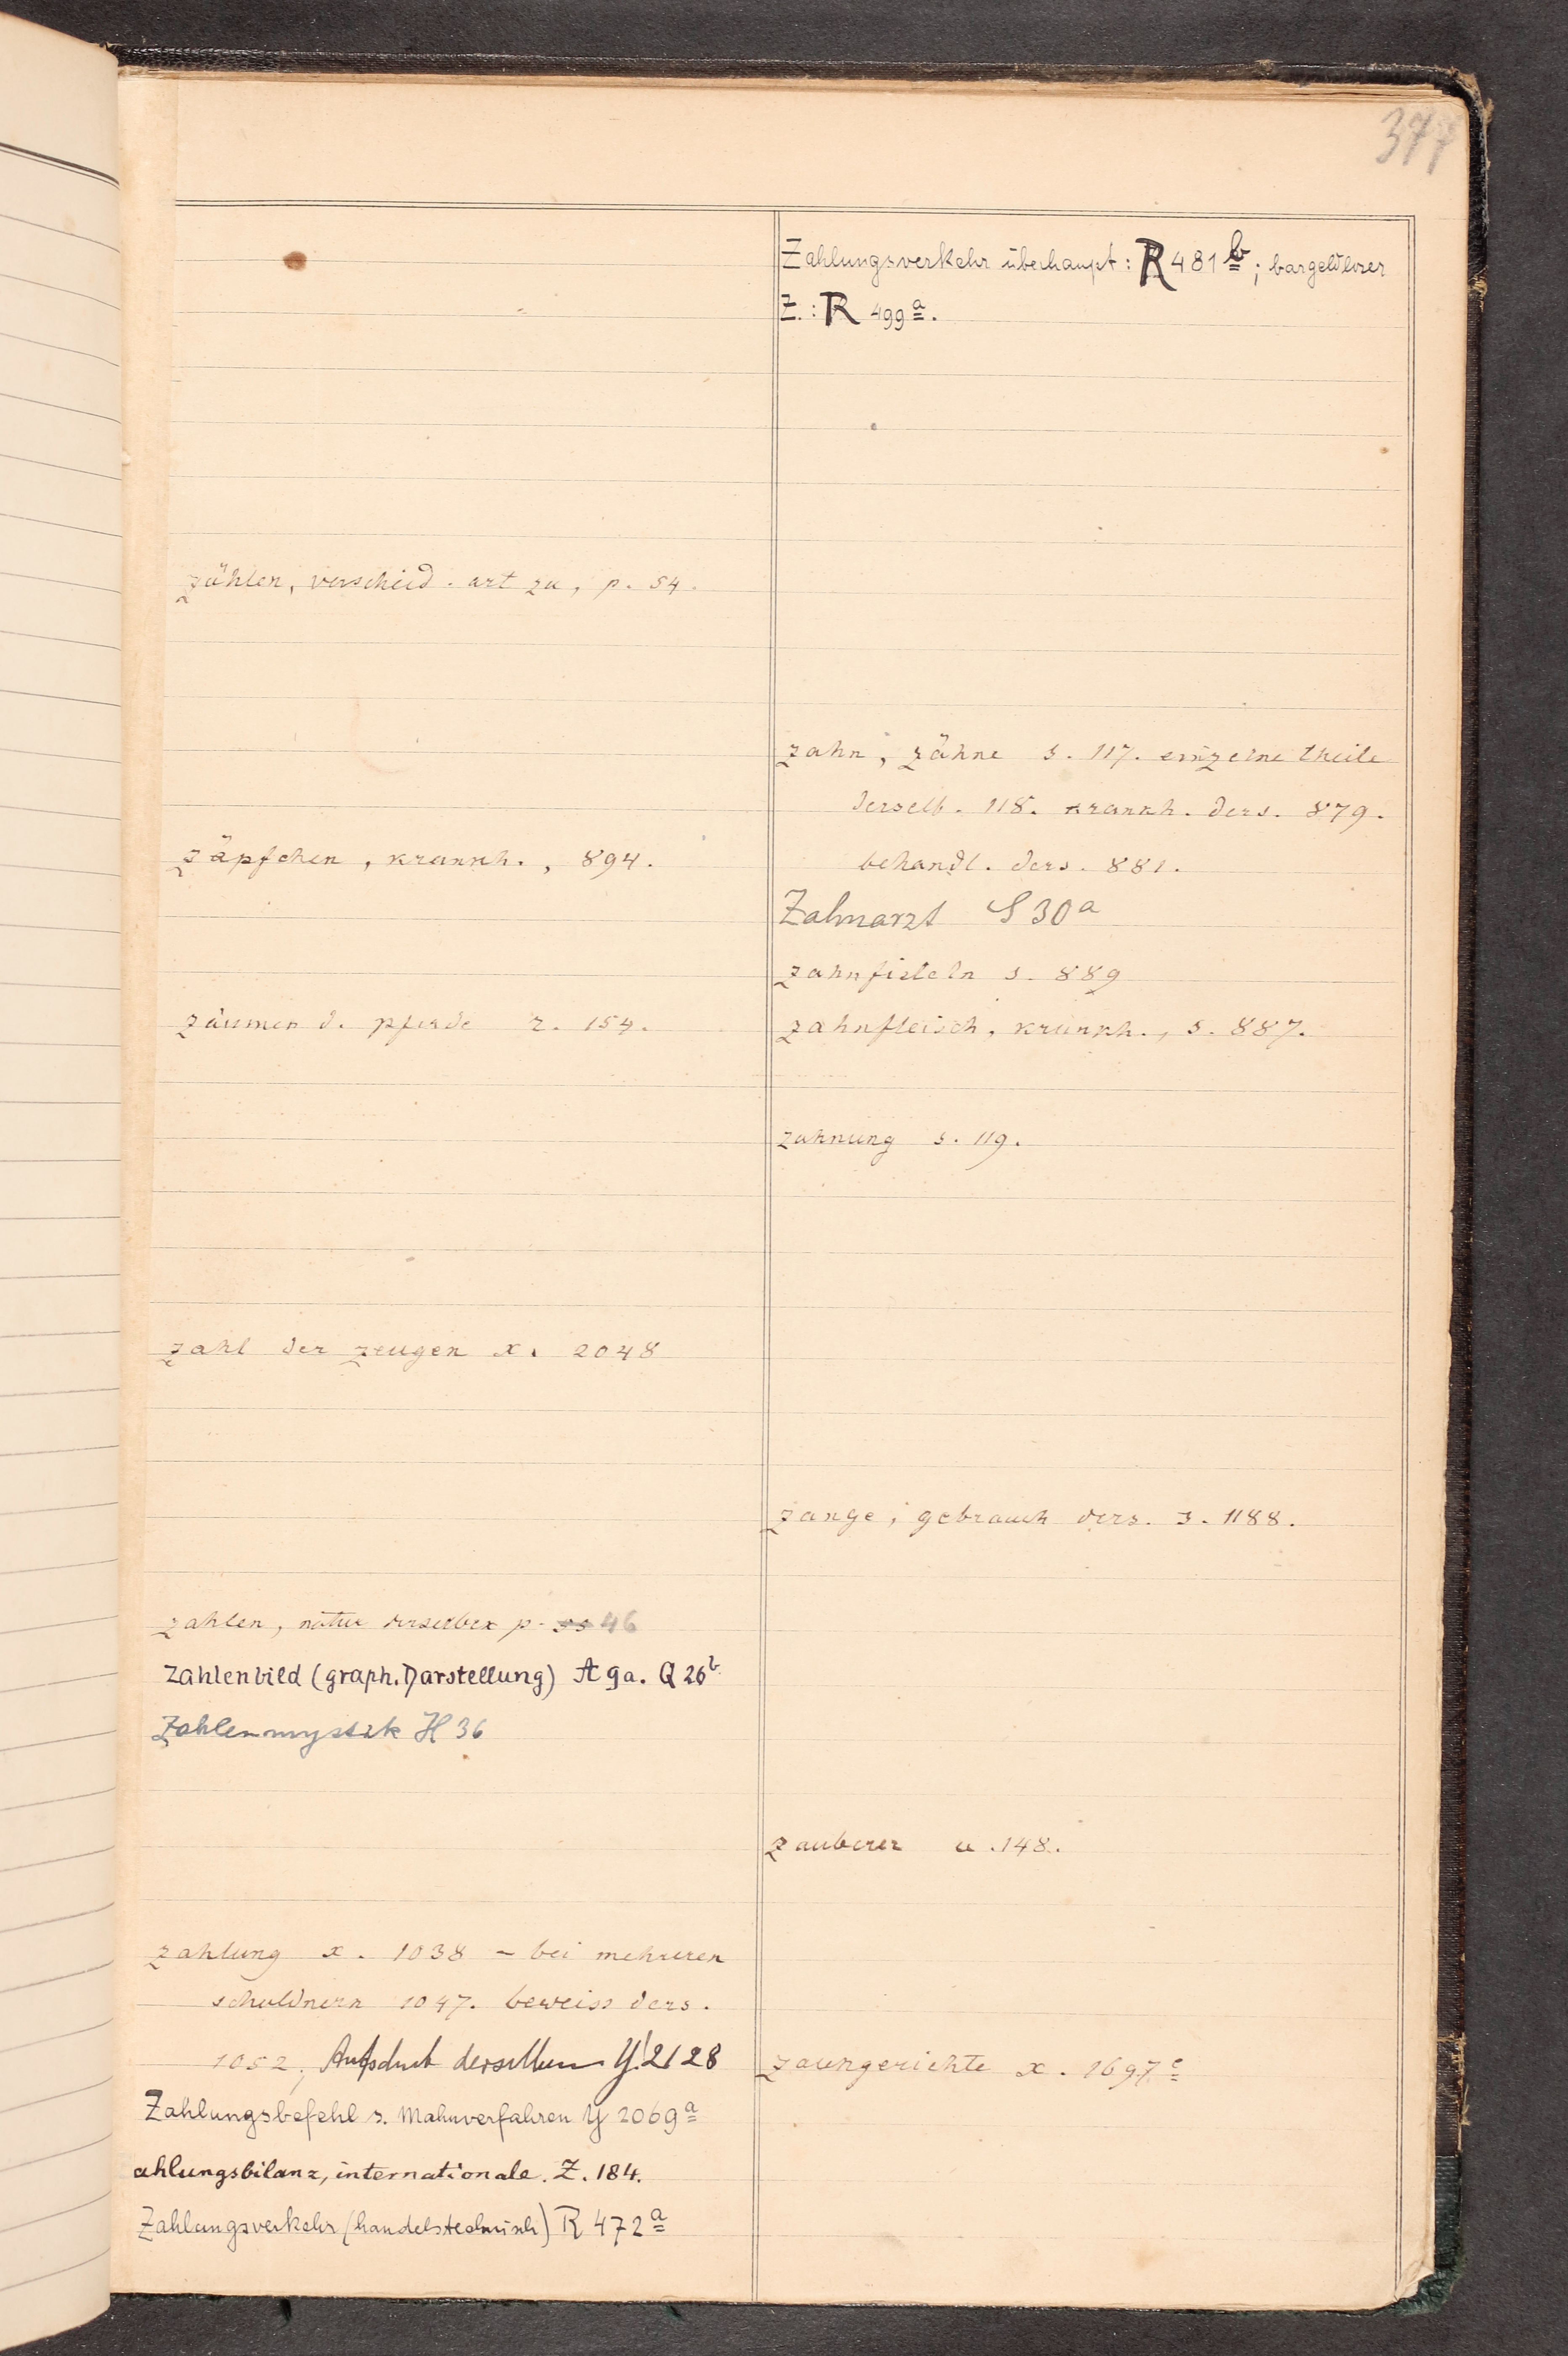 377
zählen, verschied. art zu, p. 54.
zäpfchen, krankh., 894.
zäumen d. pferde r. 154.
zahl der zeugen x. 2048
zahlen, natur derselben p. 46
Zahlenbild (graph. Darstellung) A 9a. Q 26b
Zahlenmystik H 36
zahlung x. 1038 – bei mehreren
schuldnern 1047. beweiss ders.
1052; derselben Y 2128
Zahlungsbefehl s. Mahnverfahren Y 2069a
ahlungsbilanz, internationale. Z. 184.
Zahlungsverkehr (handelstechnisch) R 472a
Zahlungsverkehr überhaupt: R 481b; bargeldloser
Z.: R 499a.
zahn, zähne s. 117. einzelne theile
derselb. 118. krankh. ders. 879.
behandl. ders. 881.
Zahnarzt S 30a
zahnfisteln s. 889
zahnfleisch, krankh., s. 887.
zahnung s. 119.
zange, gebrauch ders. s. 1188.
zauberer u. 148.
zaungerichte x. 1697c